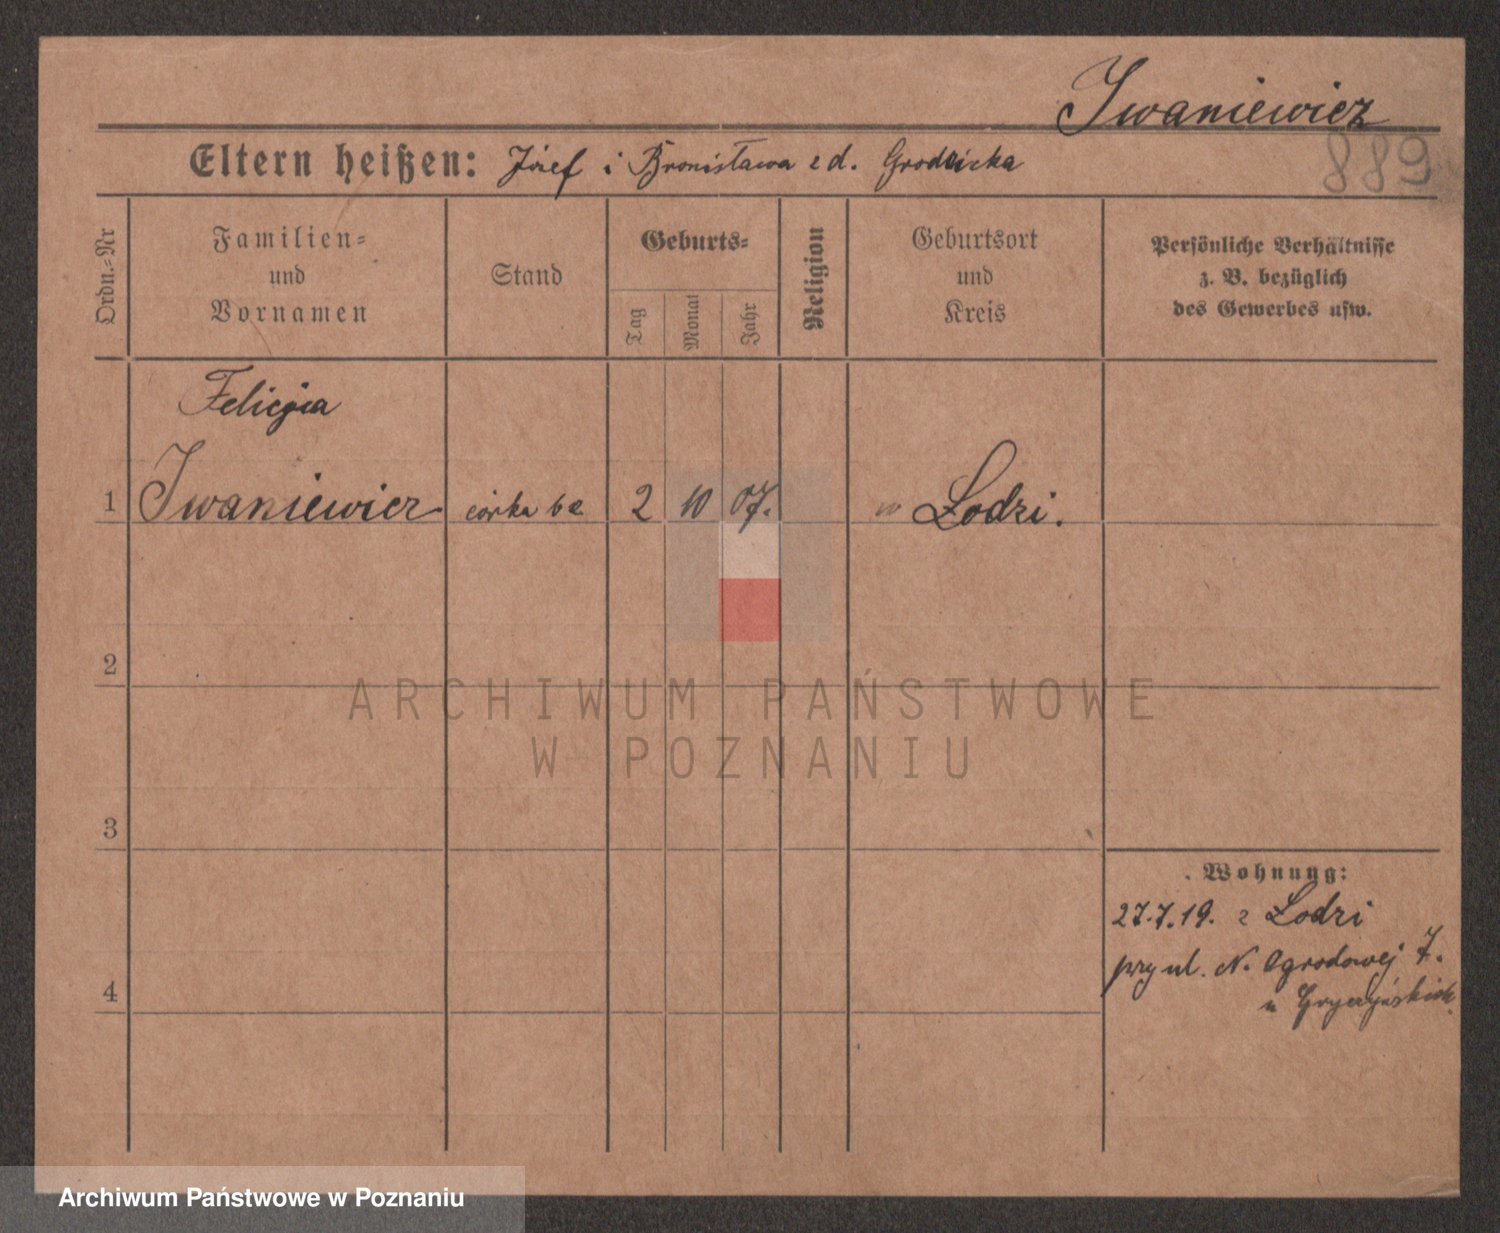 Iwaniewicz
889
Eltern heißen: Józef i Bronisława z d. Grodzicka
Ordn.-Nr
Familien-
und
Vornamen
Stand
Geburts-
Tag
Monat
Jahr
Religion
Geburtsort
und
Kreis
Persönliche Verhältnisse
z. B. bezüglich
des Gewerbes usw.
Felicja
1 Iwaniewicz córka 2 10 07. w Łodzi.
2
ARCHIWUM PAŃSTWOWE
W POZNANIU
3
Wohnung:
27.7.19. z Łodzi
przy ul. N. Ogrodowej 7.
4
u
Archiwum Państwowe w Poznaniu